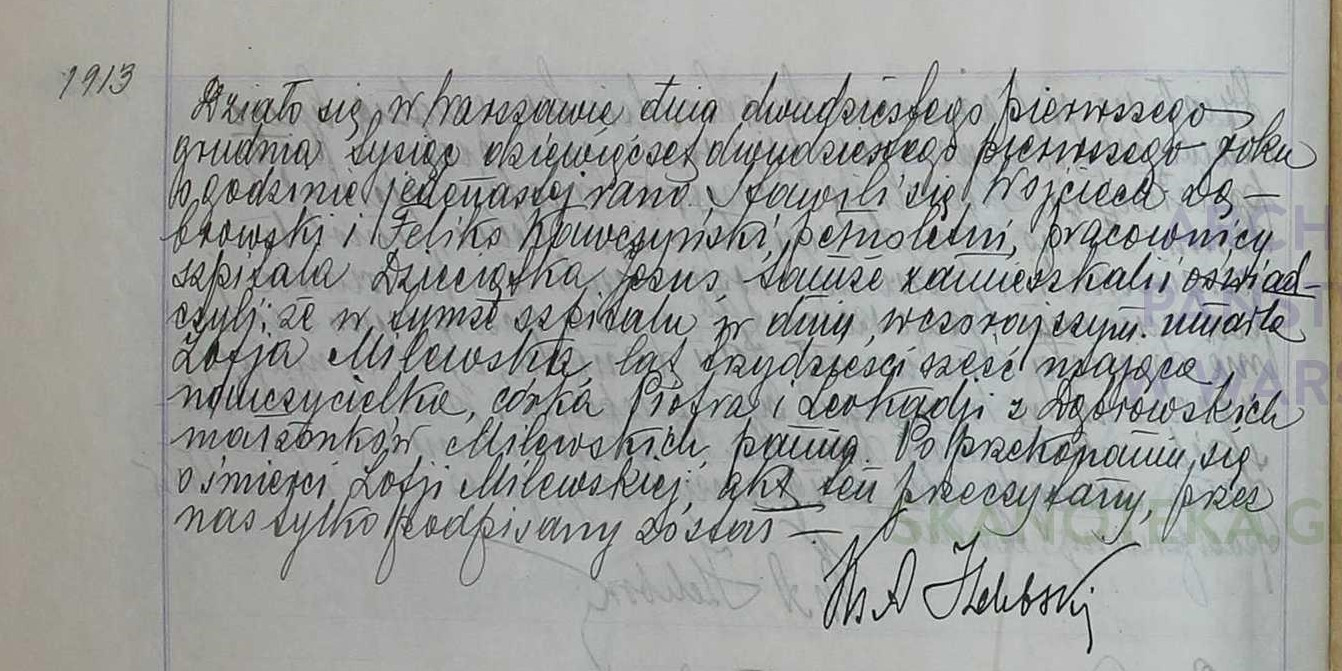 1913
Działo się w Warszawie dnia dwudziestego pierwszego
grudnia tysiąc dziewięćset dwudziestego pierwszego roku
o godzinie jedenastej rano. Stawili się Wojciech Dą-
browski i Feliks Krawczyński, pełnoletni, pracownicy
szpitala Dzieciątka Jezus, tamże zamieszkali i oświad-
czyli, że w tymże szpitalu w dniu wczorajszym umarła
Zofja Milewska lat trzydzieści sześć mająca
nauczycielka, córka Piotra i Leokadji z Dąbrowskich
małżonków Milewskich, panna. Po przekonaniu się
o śmierci Zofji Milewskiej, akt ten przeczytany, przez
nas tylko podpisany został —
Ks A
SKANOTEKA.G